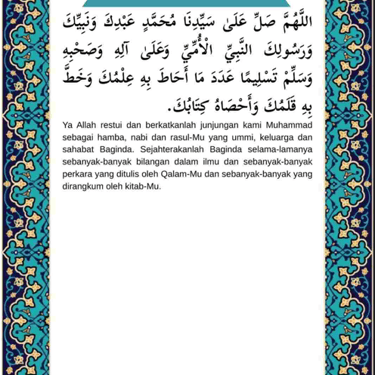 اللَّهُمَّ صَلِّ عَلَىٰ سَيِّدِنَا مُحَمَّدٍ عَبْدِكَ وَنَبِيِّكَ
وَرَسُولِكَ النَّبِيِّ الْأُمِّيِّ وَعَلَىٰ آلِهِ وَصَحْبِهِ
وَسَلِّمْ تَسْلِيمًا عَدَدَ مَا أَحَاطَ بِهِ عِلْمُكَ وَخَطَّ
بِهِ قَلَمُكَ وَأَحْصَاهُ كِتَابُكَ.
Ya Allah restui dan berkatkanlah junjungan kami Muhammad
sebagai hamba, nabi dan rasul-Mu yang ummi, keluarga dan
sahabat Baginda. Sejahterakanlah Baginda selama-lamanya
sebanyak-banyak bilangan dalam ilmu dan sebanyak-banyak
perkara yang ditulis oleh Qalam-Mu dan sebanyak-banyak yang
dirangkum oleh kitab-Mu.